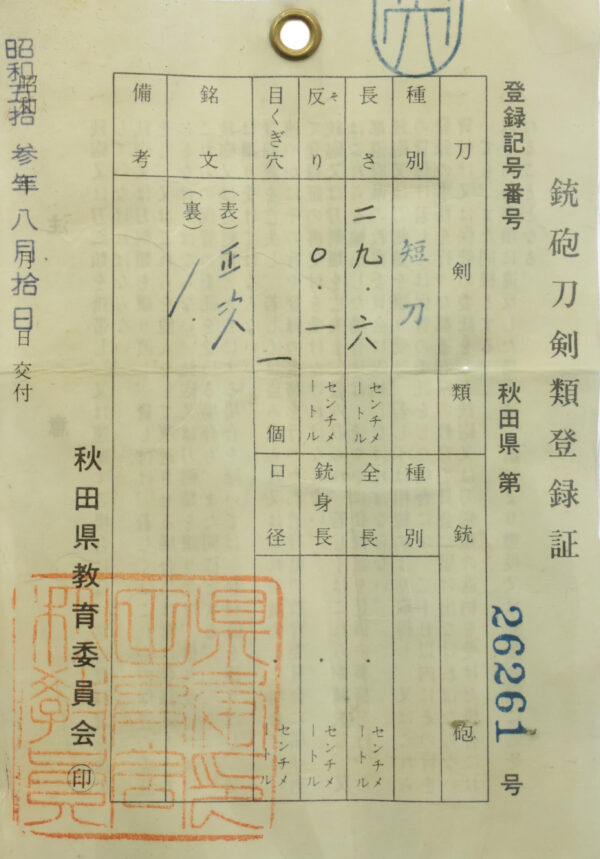 銃砲刀剣類登録証
登録記号番号 秋田県 第 26261 号
刀剣類
種別 短刀
長さ 二九.六 センチメートル
反り 〇.一 センチメートル
そ
目くぎ穴 一 個
銘文 (表) 正次
(裏)
備考
銃砲
種別
全長 . センチメートル
銃身長 . センチメートル
口径 . センチメートル
昭和五拾参年八月拾日 交付
昭和 年 月 日
秋田県教育委員会 印